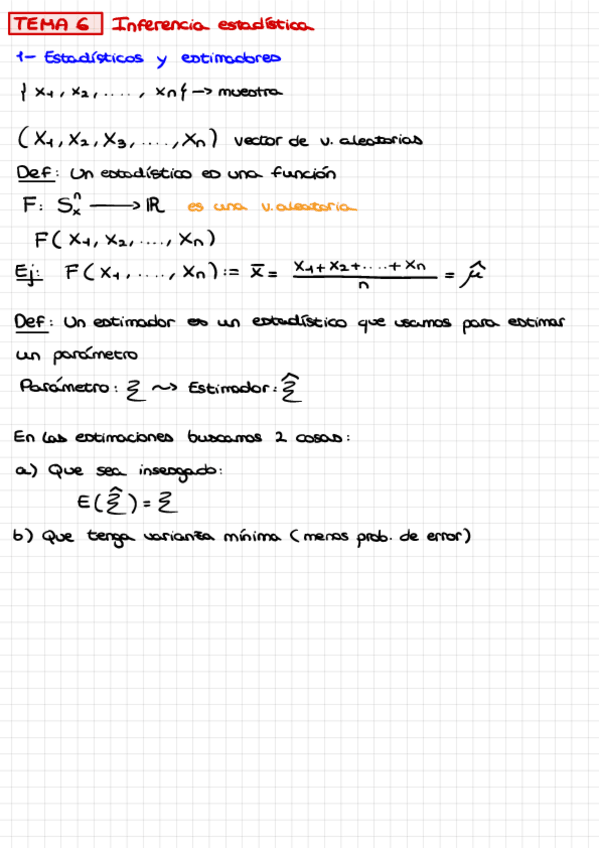 TEMA 6 Inferencia estadística
1- Estadísticos y estimadores
{ x1, x2, ...., xn } -> muestra
(X1, X2, X3, ...., Xn) vector de v. aleatorias
Def: Un estadístico es una función
F: Sₓⁿ → ℝ es una v. aleatoria
F(X1, X2, ...., Xn)
Ej: F(X1, ...., Xn) := x̄ = (X1 + X2 + .... + Xn)/n = μ̂
Def: Un estimador es un estadístico que usamos para estimar
un parámetro
Parámetro: ξ ⇝ Estimador: ξ̂
En las estimaciones buscamos 2 cosas:
a) Que sea insesgado:
E(ξ̂) = ξ
b) Que tenga varianza mínima (menos prob. de error)